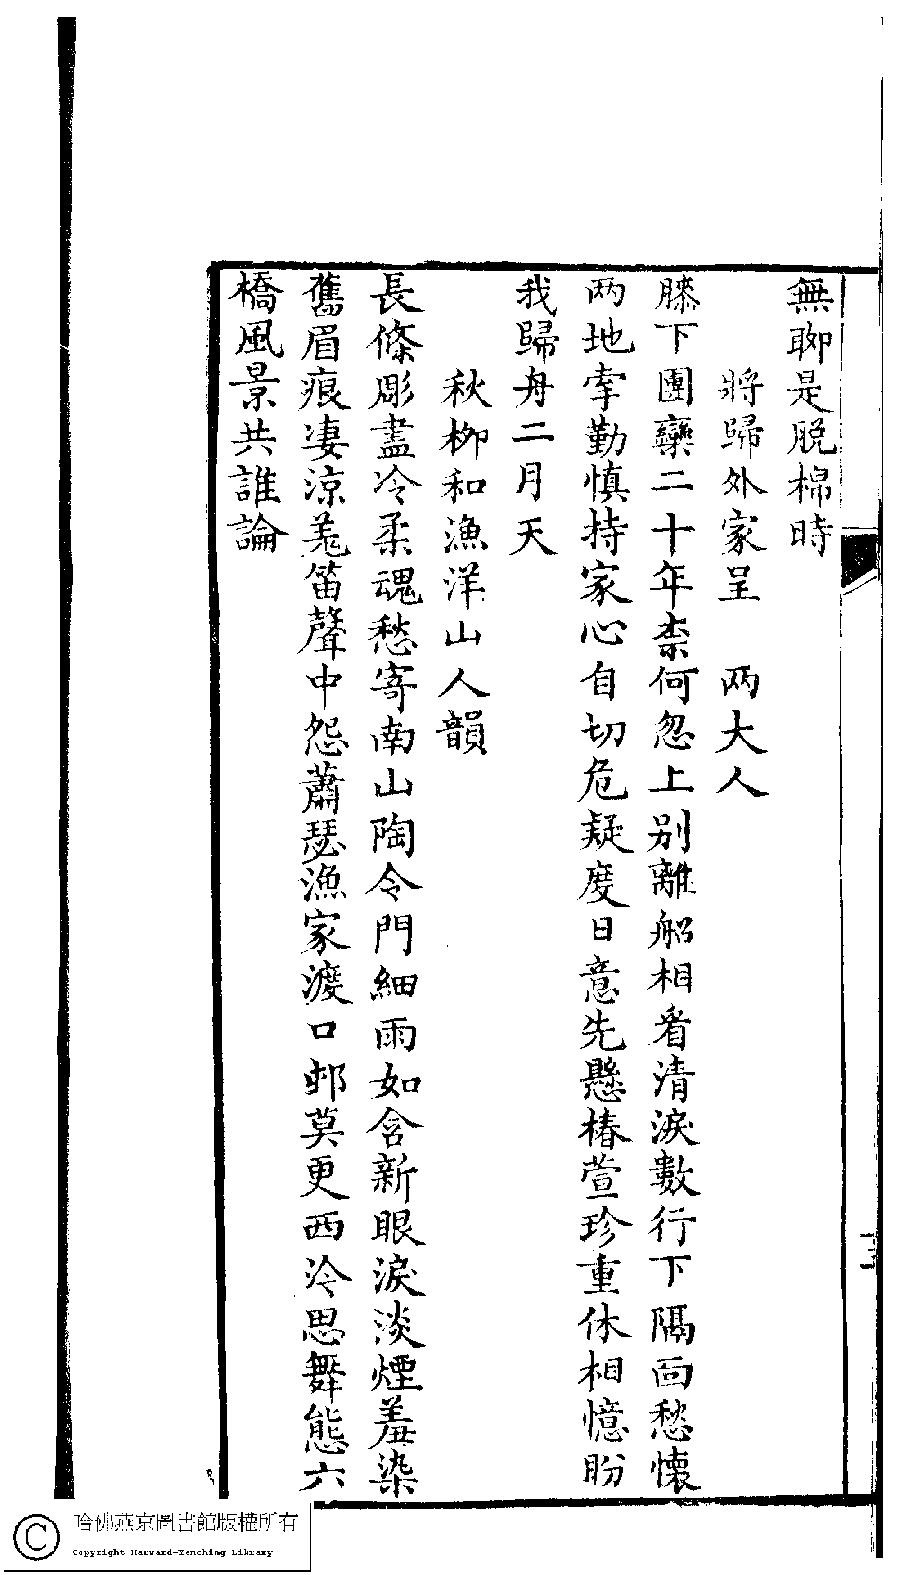 無聊是脫棉時
將歸外家呈　兩大人
膝下團欒二十年柰何忽上别離船相看清淚數行下隔面愁懷
两地牽勤慎持家心自切危疑度日意先懸椿萱珍重休相憶盼
我歸舟二月天
秋柳和漁洋山人韻
長條彫盡冷柔魂愁寄南山陶令門細雨如含新眼淚淡煙羞染
舊眉痕凄涼羗笛聲中怨蕭瑟漁家渡口邨莫更西泠思舞態六
橋風景共誰論
十二
哈佛燕京圖書館版權所有
Copyright Harvard-Yenching Library